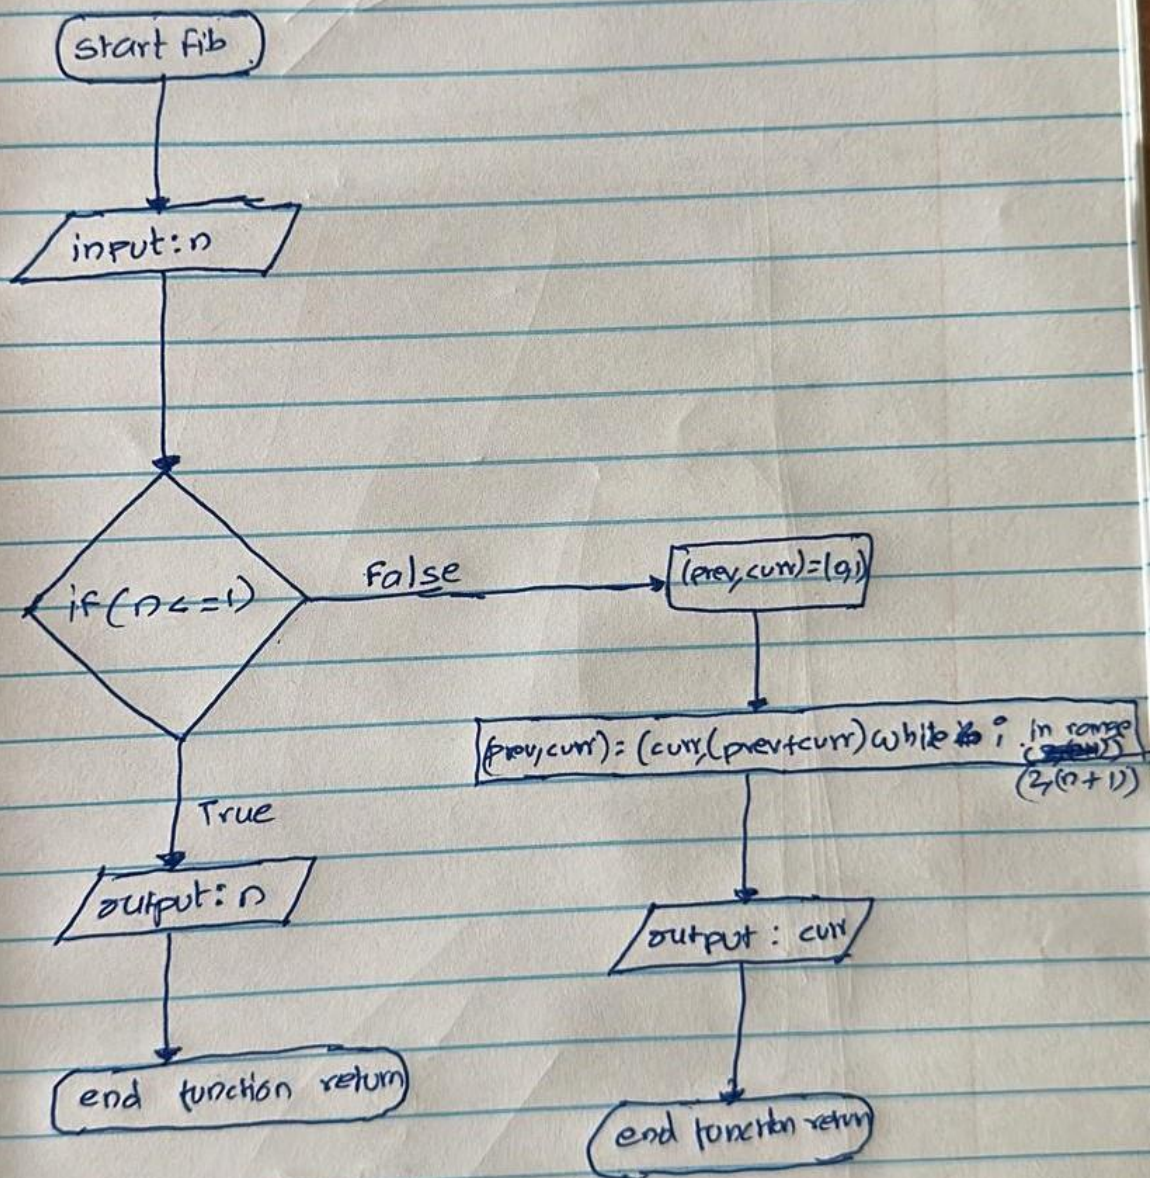 start fib
input: n
if (n <= 1)
False
(prev, curr) = (0,1)
(prev, curr) = (curr, (prev+curr) while i in range
(2,(n+1))
True
output: n
output: curr
end function return
end function return